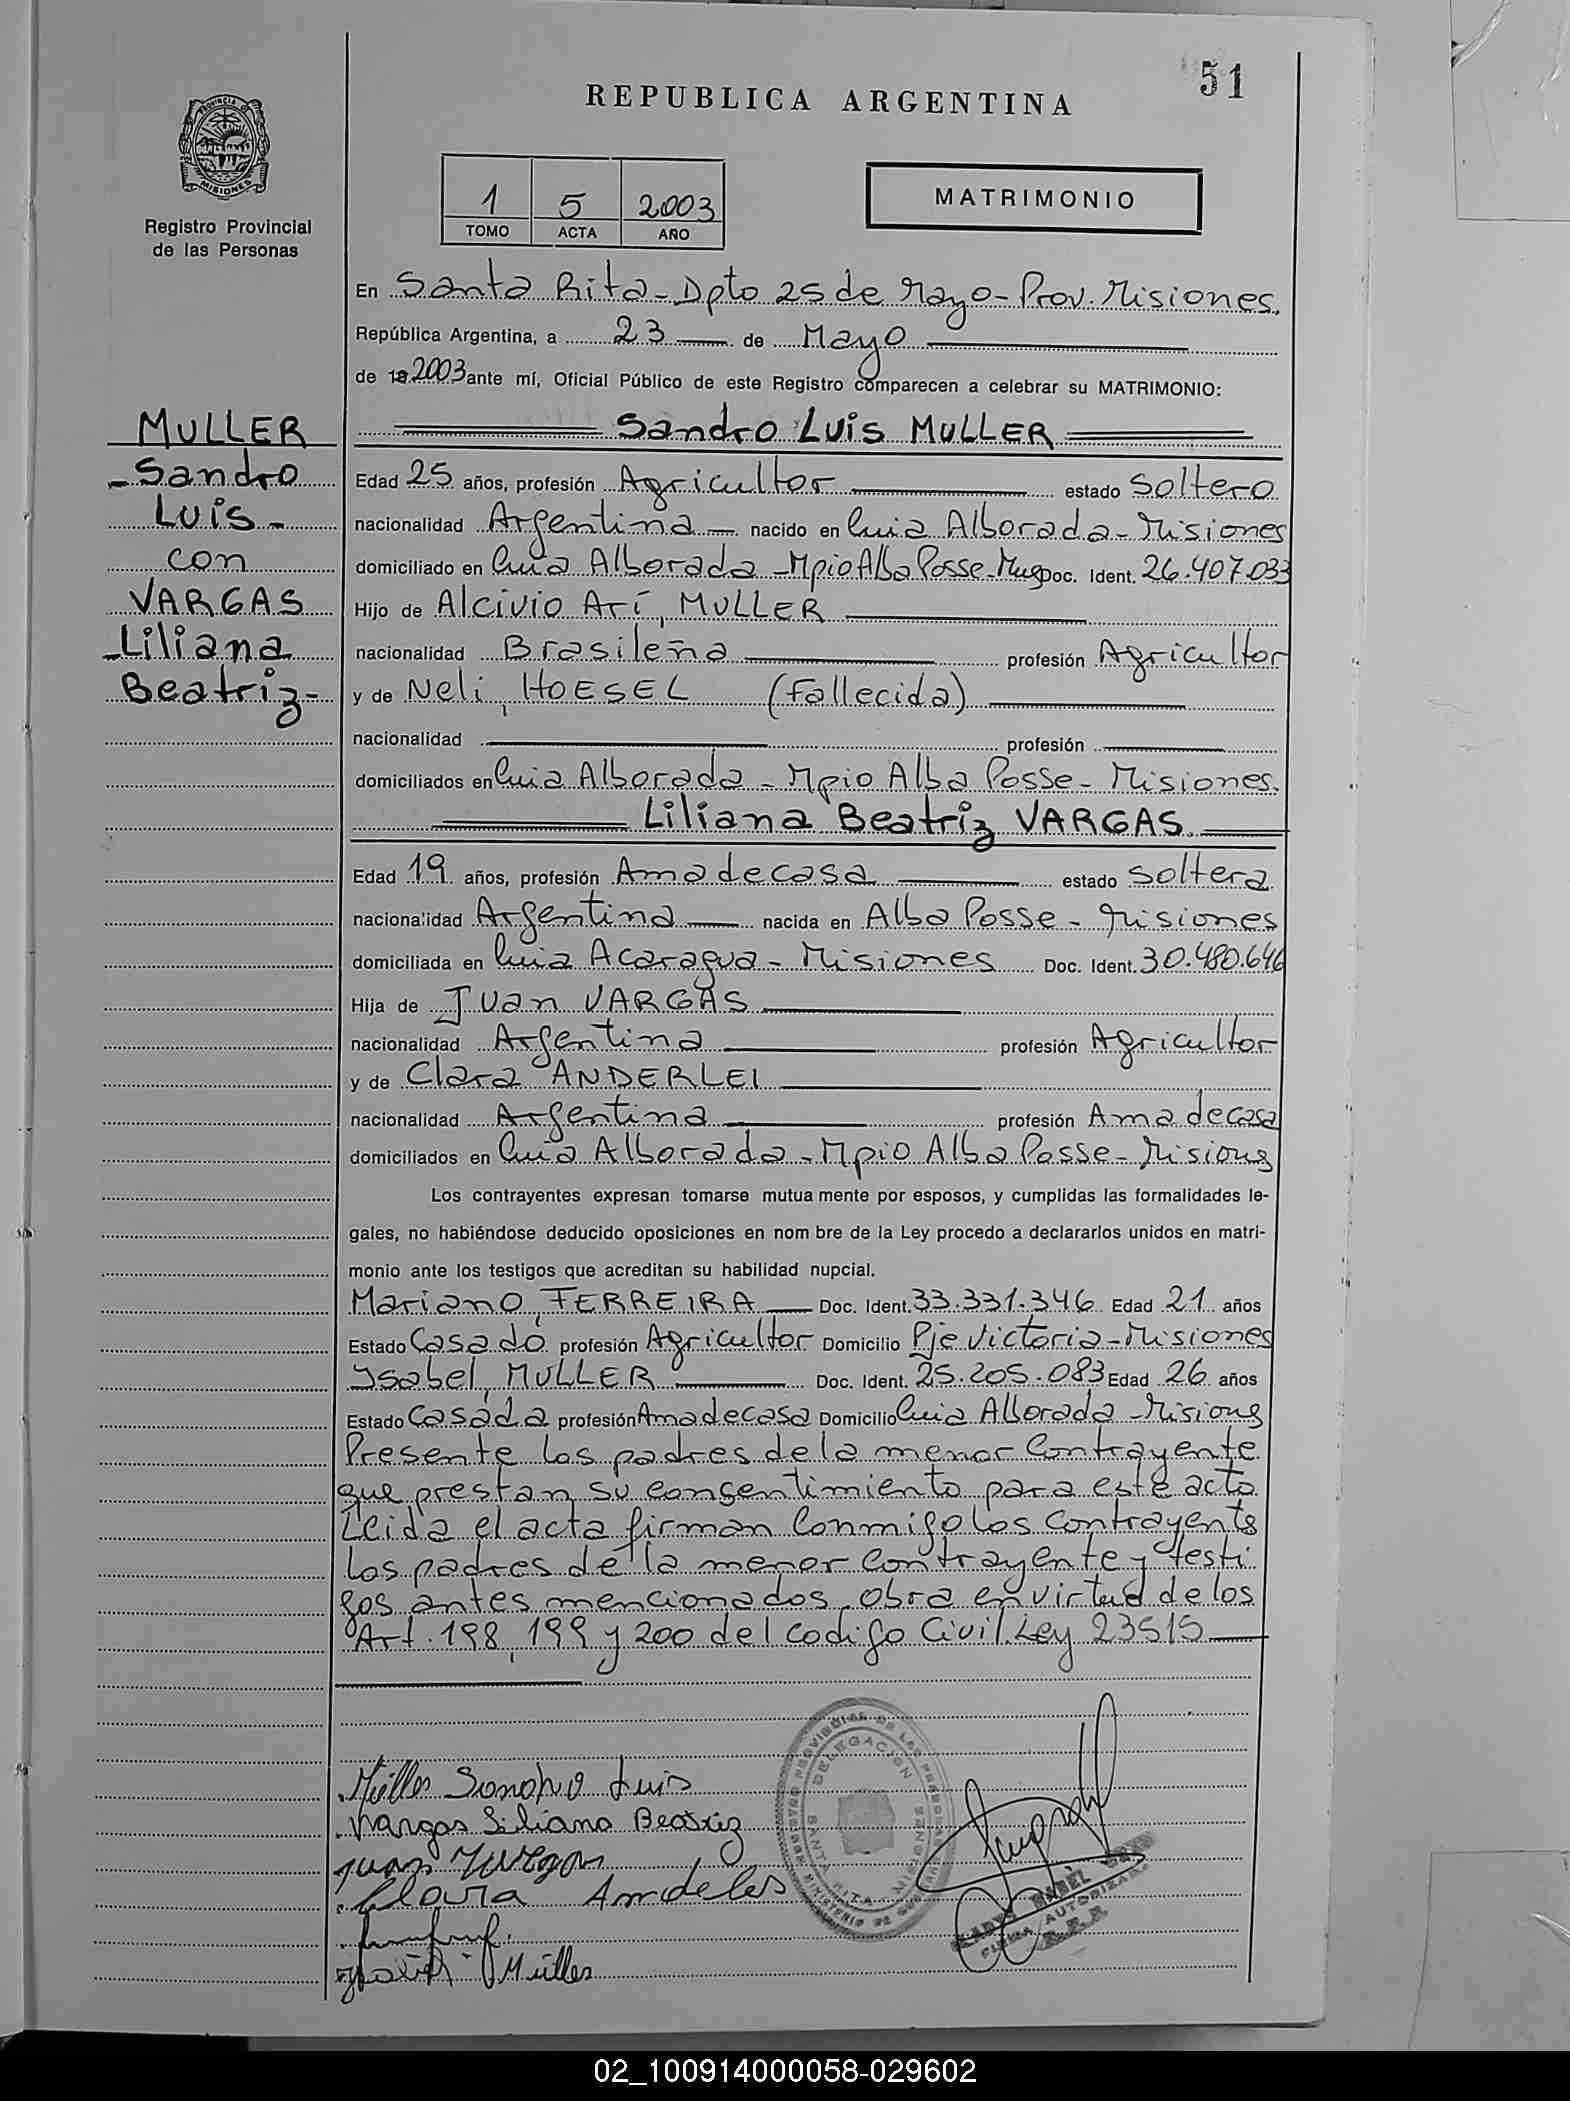 51
REPUBLICA ARGENTINA
PROVINCIA DE MISIONES
Registro Provincial
de las Personas
1 5 2003
TOMO ACTA AÑO
MATRIMONIO
En Santa Rita - Dpto 25 de Mayo - Prov. Misiones.
República Argentina, a 23 de Mayo
de 2003 ante mí, Oficial Público de este Registro comparecen a celebrar su MATRIMONIO:
MULLER
Sandro
Luis -
con
VARGAS
Liliana
Beatriz -
Sandro Luis MULLER
Edad 25 años, profesión Agricultor estado Soltero
nacionalidad Argentina nacido en Cnia Alborada - Misiones
domiciliado en Cnia Alborada - Mpio Alba Posse - Mnes Doc. Ident. 26.407.033
Hijo de Alcivio Arí, MULLER
nacionalidad Brasileña profesión Agricultor
y de Neli, HOESEL (Fallecida)
nacionalidad profesión
domiciliados en Cnia Alborada - Mpio Alba Posse - Misiones.
Liliana Beatriz VARGAS
Edad 19 años, profesión Ama de casa estado soltera
nacionalidad Argentina nacida en Alba Posse - Misiones
domiciliada en Cnia Acaragua - Misiones Doc. Ident. 30.480.646
Hija de Juan VARGAS
nacionalidad Argentina profesión Agricultor
y de Clara ANDERLEI
nacionalidad Argentina profesión Ama de casa
domiciliados en Cnia Alborada - Mpio Alba Posse - Misiones
Los contrayentes expresan tomarse mutua mente por esposos, y cumplidas las formalidades le-
gales, no habiéndose deducido oposiciones en nom bre de la Ley procedo a declararlos unidos en matri-
monio ante los testigos que acreditan su habilidad nupcial.
Mariano, FERREIRA Doc. Ident. 33.331.346 Edad 21 años
Estado Casado profesión Agricultor Domicilio Pje Victoria - Misiones
Ysabel, MULLER Doc. Ident. 25.205.083 Edad 26 años
Estado Casada profesión Ama de casa Domicilio Cnia Alborada - Misiones
Presente los padres de la menor Contrayente
que prestan su consentimiento para este acto
Leida el acta firman Conmigo los contrayents
los padres de la menor contrayente y testi
gos antes mencionados. obra en virtud de los
Art. 198, 199 y 200 del Codigo Civil. Ley 23515
Müller Sandro Luis
Vargas Liliana Beatriz
Juan Vargas
Clara Anderlei
Müller
REGISTRO PROVINCIAL DE LAS PERSONAS
MINISTERIO DE GOBIERNO
DELEGACION
SANTA RITA MISIONES
FIRMA AUTORIZADA
02_100914000058-029602